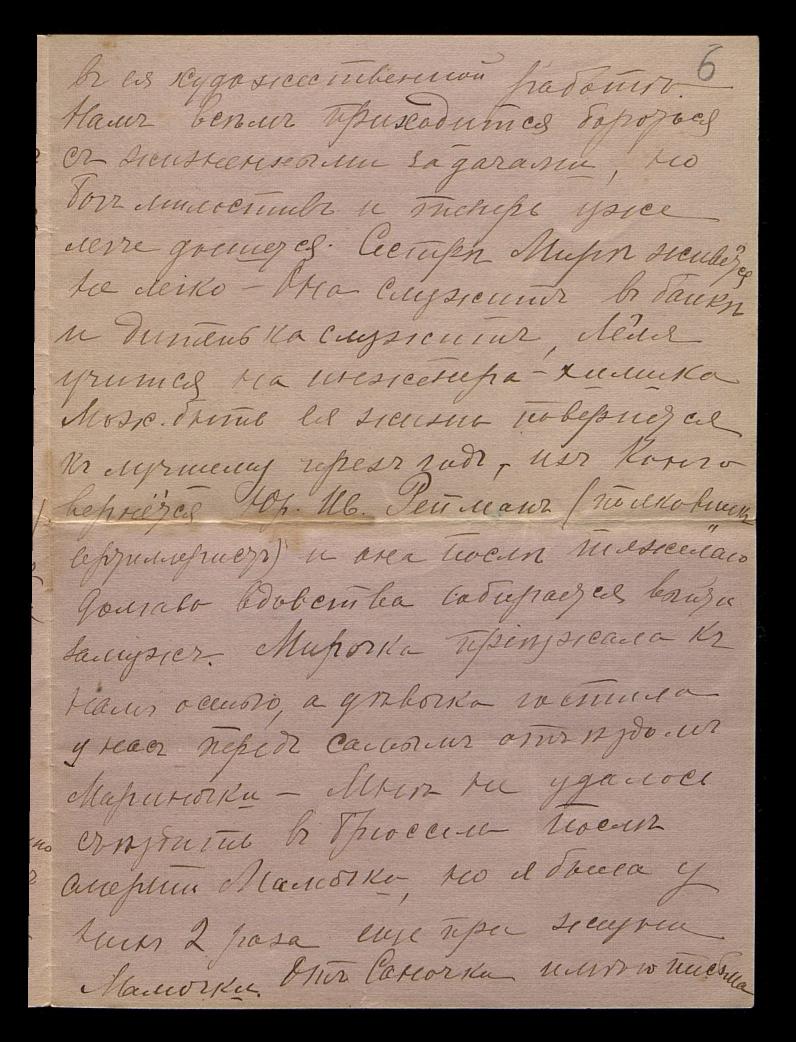 6
въ ея художественной работѣ.
Намъ всѣмъ приходится бороться
съ жизненными задачами, но
Богъ милостивъ и теперь уже
легче дышется. Сестрѣ Мирѣ живется
не легко – Она служитъ въ банкѣ
и Дитенька служитъ, Лёля
учится на инженера-химика
Мож. быть ея жизнь повернется
къ лучшему черезъ годъ, изъ Конго
вернётся Юр. Ив. Рейманъ (полковникъ
артиллеристъ) и она послѣ тяжелаго
долгаго вдовства собирается выйти
замужъ. Мирочка пріѣзжала къ
намъ осенью, а дѣвочка гостила
у насъ передъ самымъ отъѣздомъ
Мариночки – Мнѣ не удалось
съѣздить въ Брюссель послѣ
смерти Мамочки, но я была у
нихъ 2 раза еще при жизни
Мамочки. Отъ Саночки имѣю письма